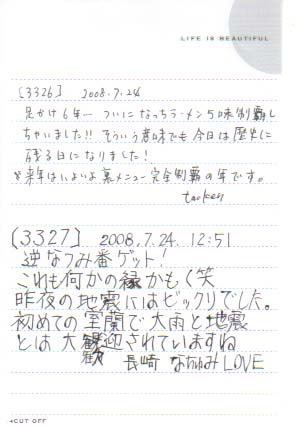 LIFE IS BEAUTIFUL
[3326] 2008.7.24
足かけ6年── ついになっちラーメン5味制覇し
ちゃいました!! そういう意味でも今日は歴史に
残る日になりました!
来年はいよいよ裏メニュー完全制覇の年です。
taoken
[3327] 2008.7.24. 12:51
逆なつみ番ゲット!
これも何かの縁かもく笑
昨夜の地震にはビックリでした。
初めての室蘭で大雨と地震
とは大歓迎されていますね
歓
長崎 なちゅみLOVE
◂CUT OFF